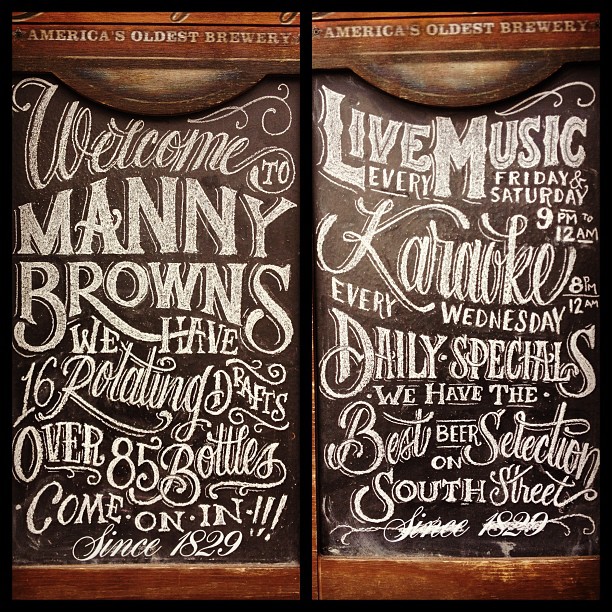 AMERICA'S OLDEST BREWERY
Welcome
TO
MANNY
BROWNS
WE HAVE
16 Rotating DRAFTS
OVER 85 Bottles
COME·ON·IN·!!!
Since 1829
AMERICA'S OLDEST BREWERY
LIVE MUSIC
EVERY FRIDAY &
SATURDAY
9 PM TO
12 AM
Karaoke
8PM
12AM
EVERY WEDNESDAY
DAILY·SPECIALS
·WE HAVE THE·
Best BEER Selection
ON
SOUTH Street
Since 1829